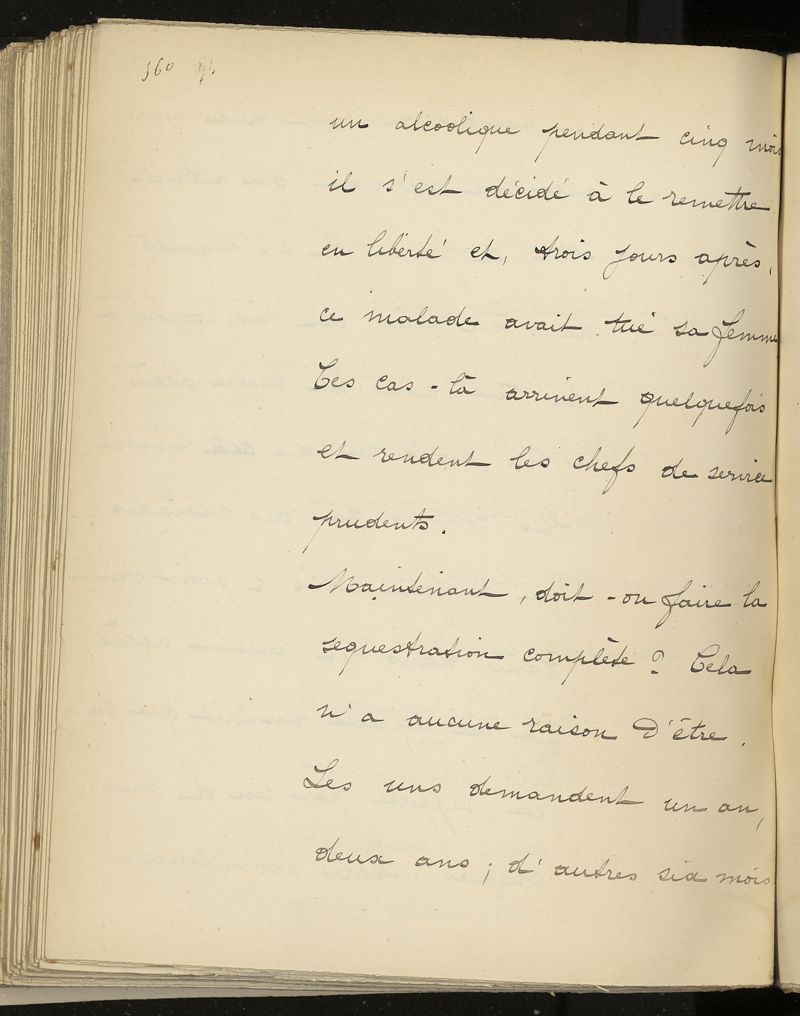 360
un alcoolique pendant cinq mois
il s'est décidé à le remettre
en liberté et, trois jours après,
ce malade avait tué sa femme
Ces cas-là arrivent quelquefois
et rendent les chefs de service
prudents.
Maintenant, doit-on faire la
sequestration complète ? Cela
n'a aucune raison d'être.
Les uns demandent un an,
deux ans ; d'autres six mois